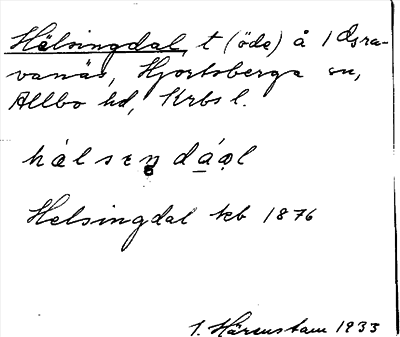 Hälsingdal, t (öde) å 1 Osra-
vanäs, Hjortsberga sn,
Allbo hd, Krbs l.
hálseŋdáǫl
Helsingdal tkb 1876
I. Härenstam 1933